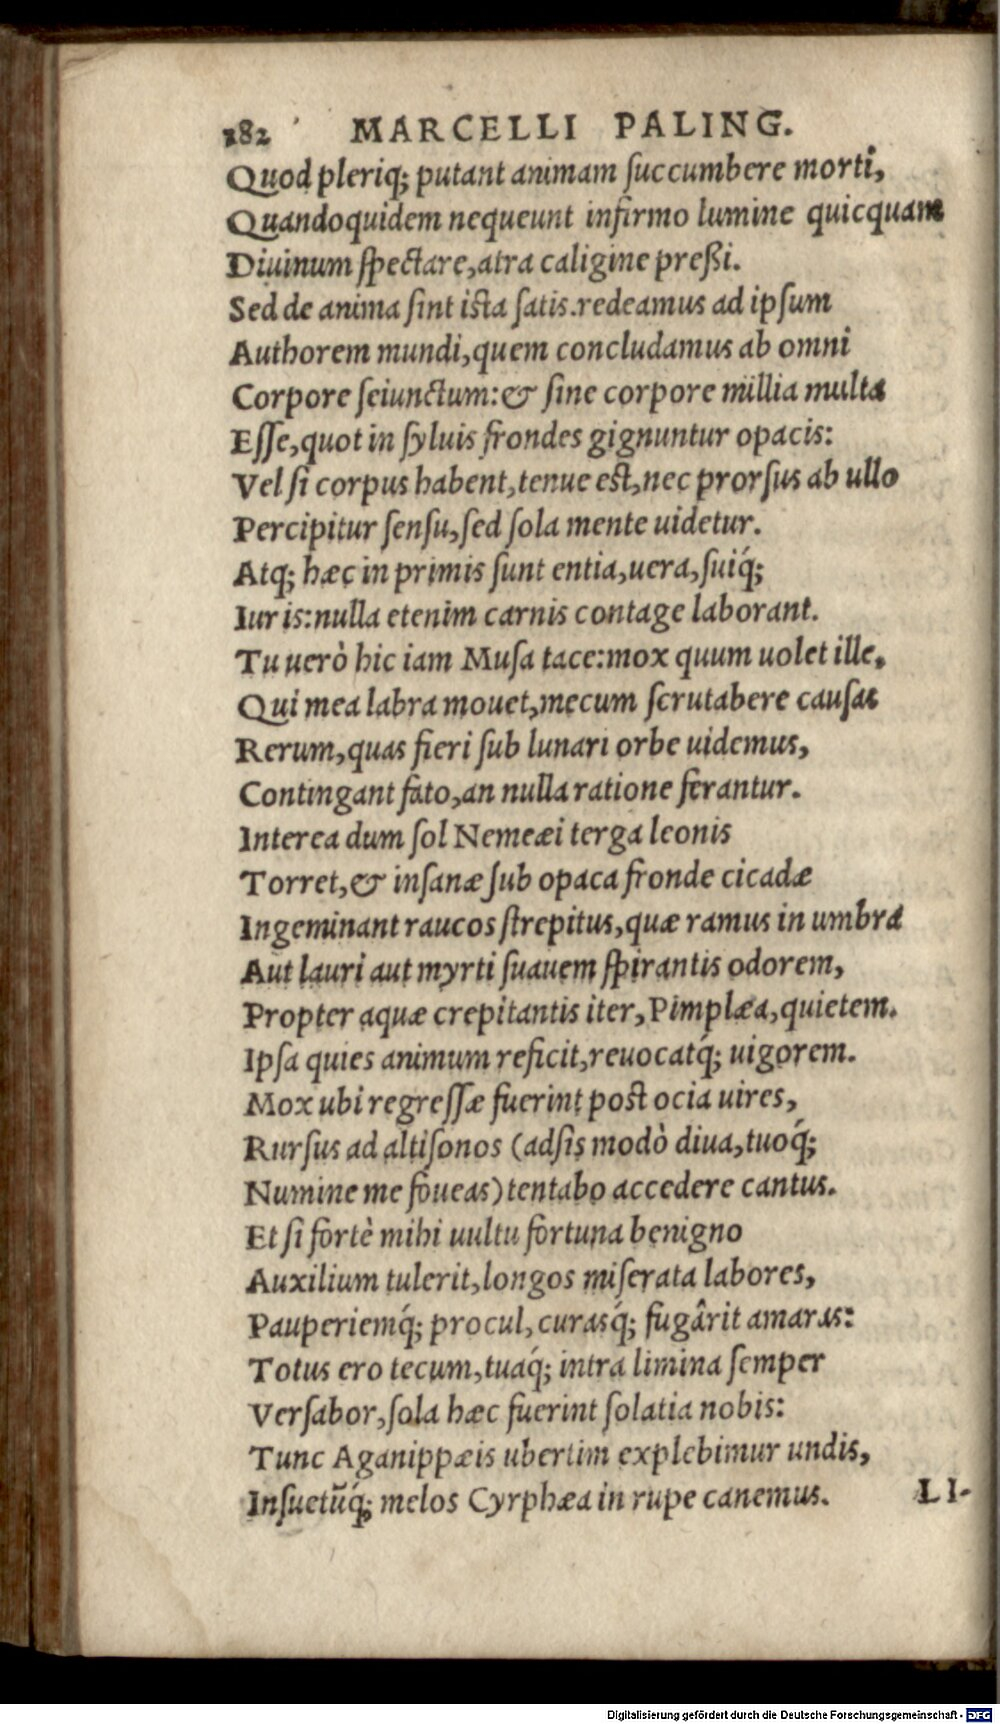 182 MARCELLI PALING.
Quod pleriq; putant animam ſuccumbere morti,
Quandoquidem nequeunt infirmo lumine quicquam
Diuinum ſpectare, atra caligine preßi.
Sed de anima ſint iſta ſatis. redeamus ad ipſum
Authorem mundi, quem concludamus ab omni
Corpore ſeiunctum: & ſine corpore millia multa
Eſſe, quot in ſyluis frondes gignuntur opacis:
Vel ſi corpus habent, tenue eſt, nec prorſus ab ullo
Percipitur ſenſu, ſed ſola mente uidetur.
Atq; hæc in primis ſunt entia, uera, ſuiq́;
Iuris: nulla etenim carnis contage laborant.
Tu uerò hic iam Muſa tace: mox quum uolet ille,
Qui mea labra mouet, mecum ſcrutabere cauſas
Rerum, quas fieri ſub lunari orbe uidemus,
Contingant fato, an nulla ratione ferantur.
Interea dum ſol Nemeæi terga leonis
Torret, & inſanæ ſub opaca fronde cicadæ
Ingeminant raucos ſtrepitus, quæ ramus in umbra
Aut lauri aut myrti ſuauem ſpirantis odorem,
Propter aquæ crepitantis iter, Pimplæa, quietem.
Ipſa quies animum reficit, reuocatq́; uigorem.
Mox ubi regreſſæ fuerint poſt ocia uires,
Rurſus ad altiſonos (adſis modò diua, tuoq́;
Numine me foueas) tentabo accedere cantus.
Et ſi fortè mihi uultu fortuna benigno
Auxilium tulerit, longos miſerata labores,
Pauperiemq́; procul, curasq́; fugârit amaras:
Totus ero tecum, tuaq́; intra limina ſemper
Verſabor, ſola hæc fuerint ſolatia nobis:
Tunc Aganippæis ubertim explebimur undis,
Inſuetũq́; melos Cyrphæa in rupe canemus. LI-
Digitalisierung gefördert durch die Deutsche Forschungsgemeinschaft - DFG